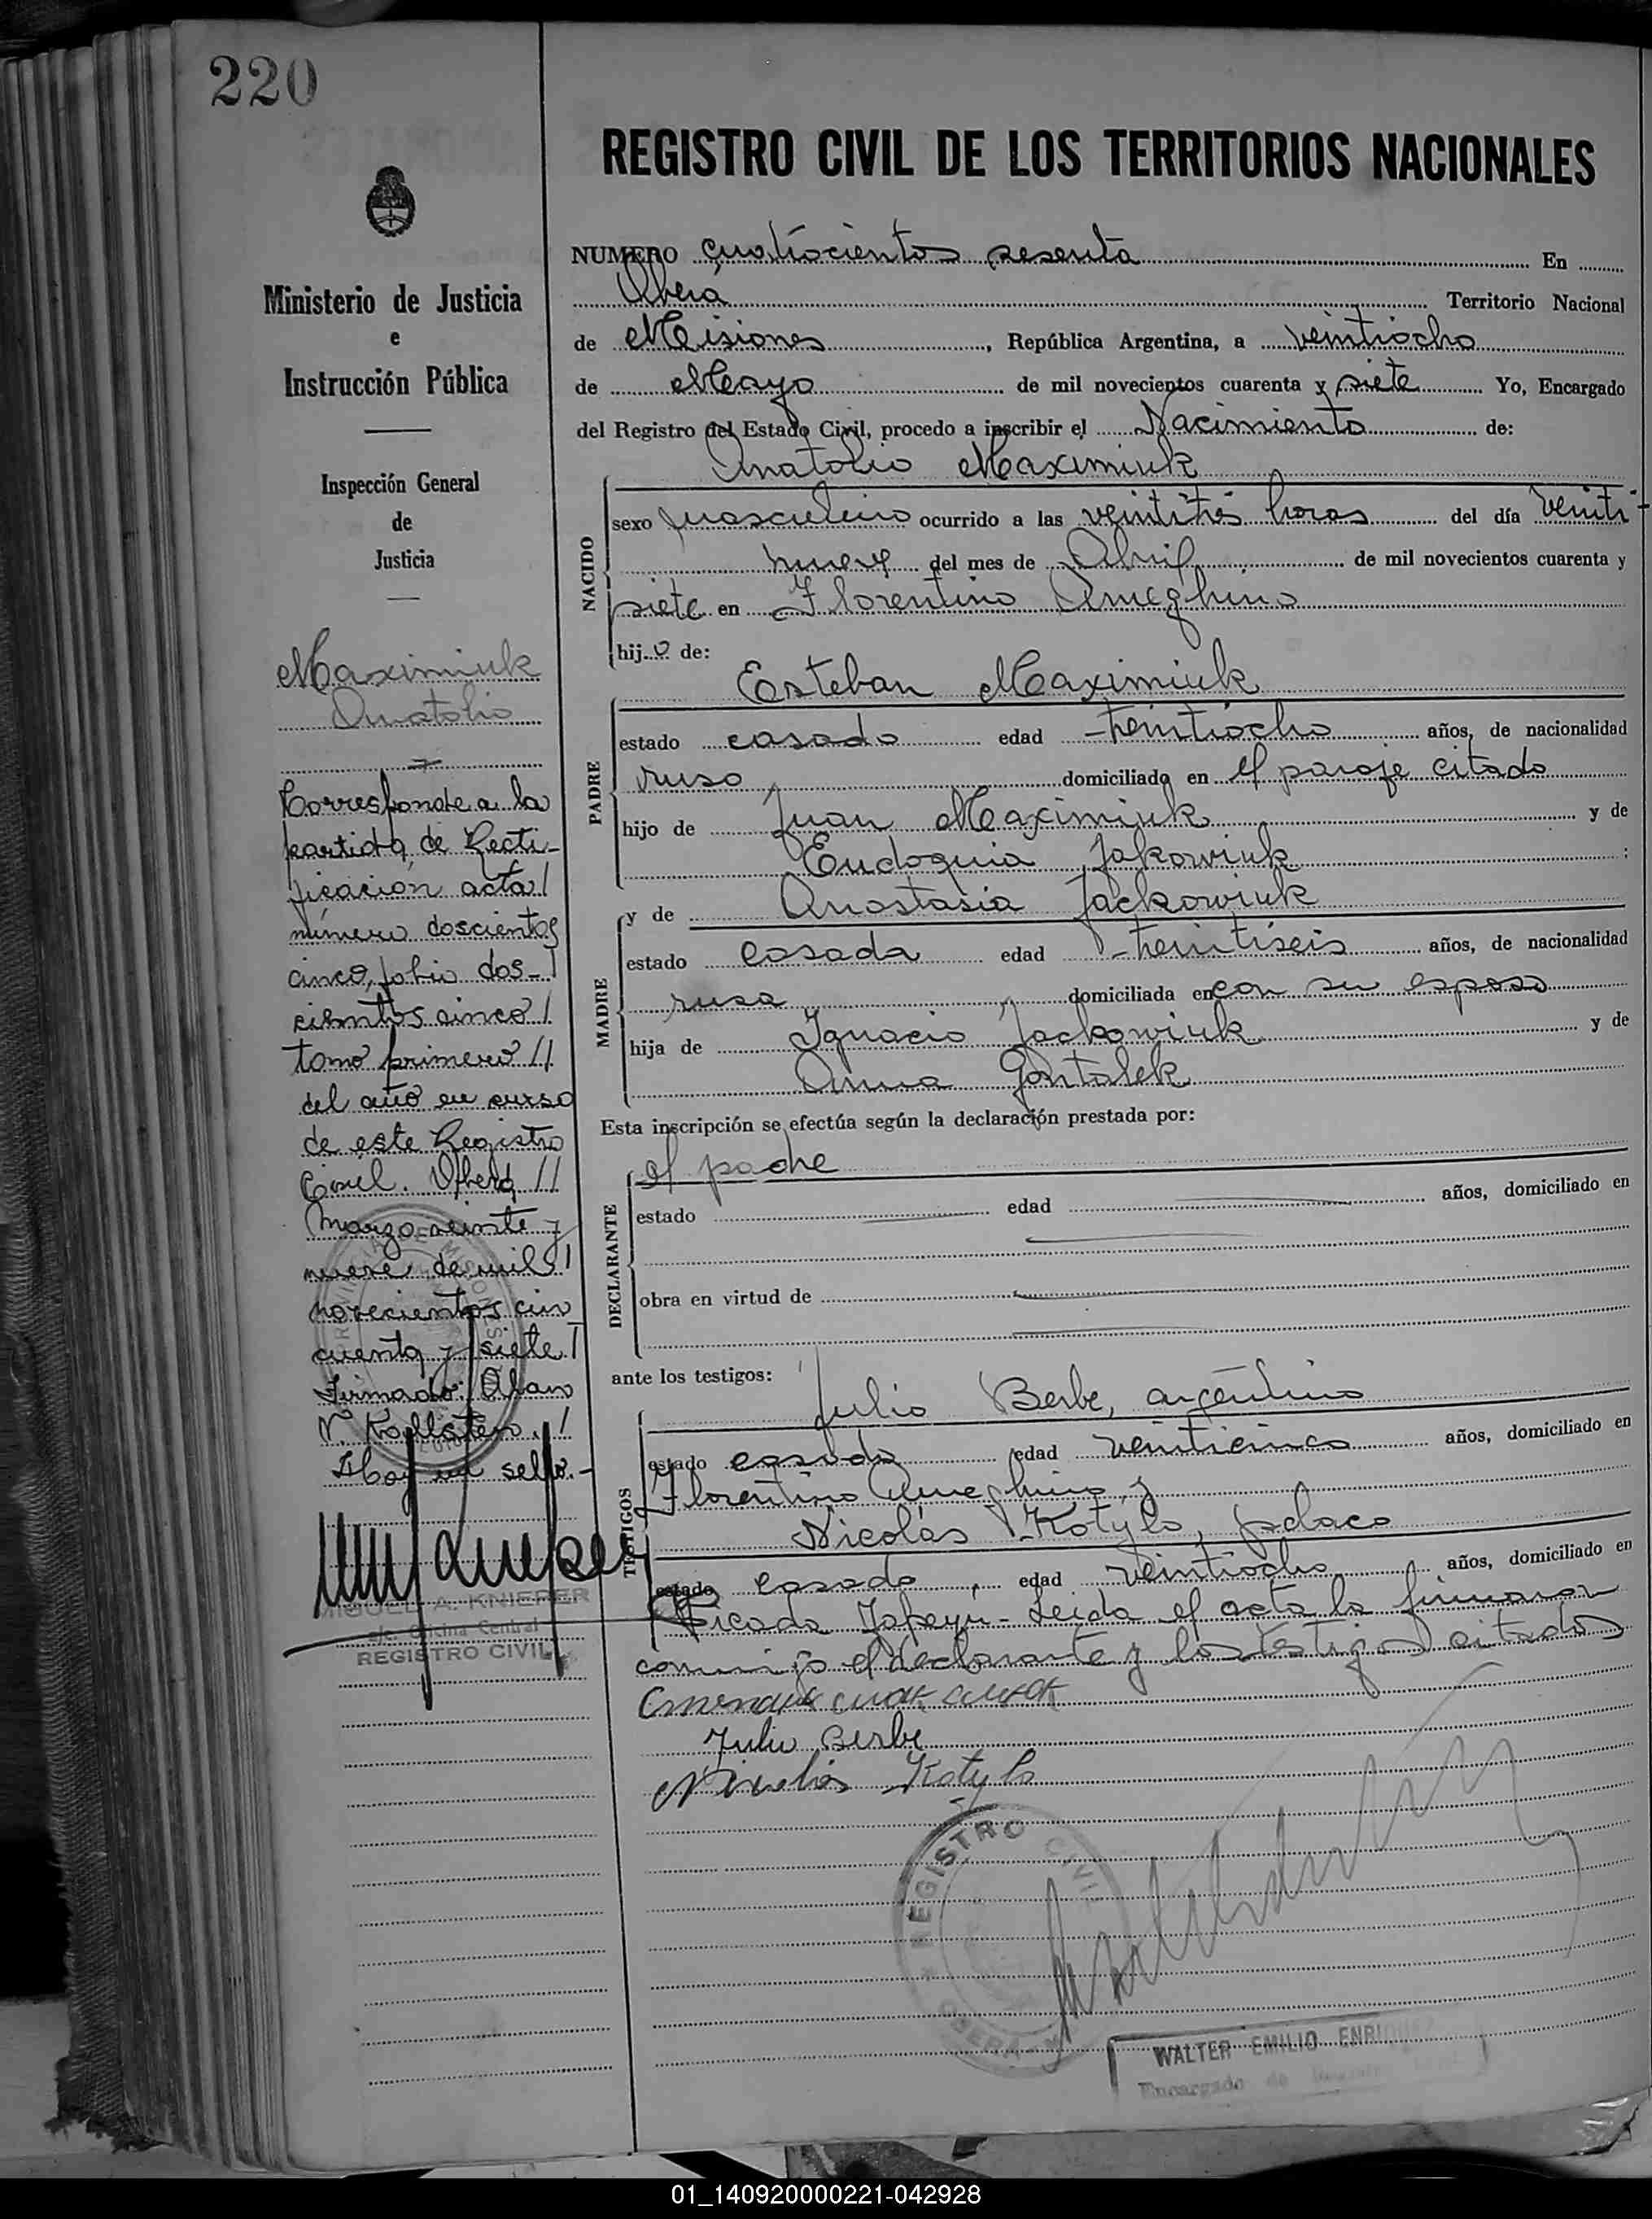 220
REGISTRO CIVIL DE LOS TERRITORIOS NACIONALES
Ministerio de Justicia
e
Instrucción Pública
Inspección General
de
Justicia
Maximiuk
Anatolio
Corresponde a la
partida de Recti-
ficación acta/
número doscientos
cinco, folio dos-/
cientos cinco/
tomo primero//
del año en curso
de este Registro
Civil. Oberá//
Marzo veinte y
nueve de mil/
novecientos cin
cuenta y siete/
Firmado:
Hay un sello.-
MIGUEL A. KNIERER
Oficina Central
REGISTRO CIVIL
NUMERO cuatrocientos sesenta En
Oberá Territorio Nacional
de Misiones, República Argentina, a veintiocho
de Mayo de mil novecientos cuarenta y siete Yo, Encargado
del Registro del Estado Civil, procedo a inscribir el Nacimiento de:
Anatolio Maximiuk
NACIDO
sexo masculino ocurrido a las veintitrés horas del día veinti-
nueve del mes de Abril de mil novecientos cuarenta y
siete en Florentino Ameghino
hijo de:
Esteban Maximiuk
PADRE
estado casado edad treintiocho años, de nacionalidad
ruso domiciliado en el paraje citado
hijo de Juan Maximiuk y de
Eudoquia Jakowiuk:
y de Anastasia Jackowiuk
MADRE
estado casada edad treintiseis años, de nacionalidad
rusa domiciliada en con su esposo
hija de Ignacio Jackowiuk y de
Anna Gontalek
Esta inscripción se efectúa según la declaración prestada por:
DECLARANTE
el padre
estado edad años, domiciliado en
obra en virtud de
ante los testigos:
Julio Berbe, argentino
TESTIGOS
estado casado edad veinticinco años, domiciliado en
Florentino Ameghino y
Nicolás Kotylo, polaco
estado casado, edad veintiocho años, domiciliado en
Picada Yapeyú- Leida el acta la firmaron
conmigo el declarante y los testigos citados
Julio Berbe
Kotylo
REGISTRO CIVIL
OBERA
WALTER EMILIO ENRIQUEZ
Encargado de
01_140920000221-042928